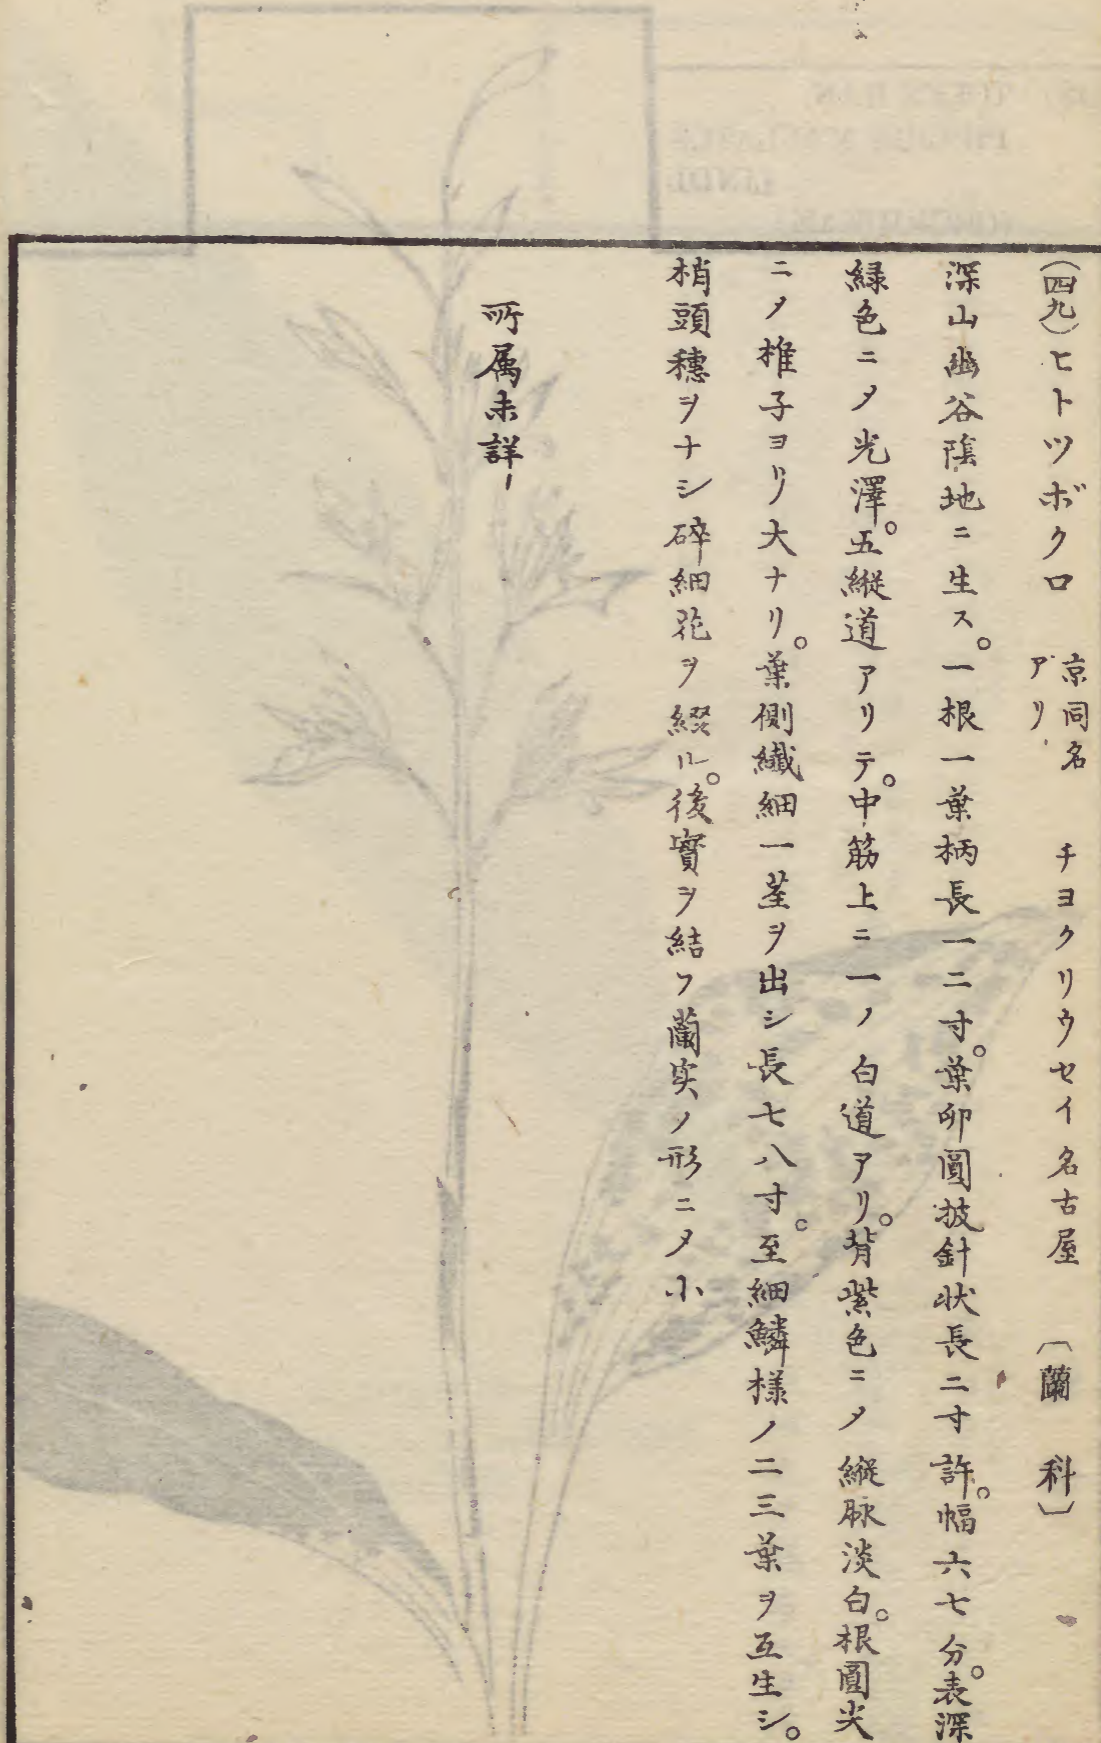 (四九)ヒトツボクロ 京同名アリ チヨクリウセイ名古屋 〔蘭科〕
深山幽谷陰地ニ生ス。一根一葉柄長一二寸。葉卵圓披針状長二寸許。幅六七分。表深
緑色ニ㇒光澤。五縦道アリテ。中筋上ニ一ノ白道アリ。背紫色ニ㇒縦脉淡白。根圓尖
ニ㇒椎子ヨリ大ナリ。葉側纎細一莖ヲ出シ長七八寸。至細鱗様ノ二三葉ヲ互生シ。
梢頭穗ヲナシ碎細花ヲ綴ル。後實ヲ結フ蘭実ノ形ニ㇒小
所属未詳